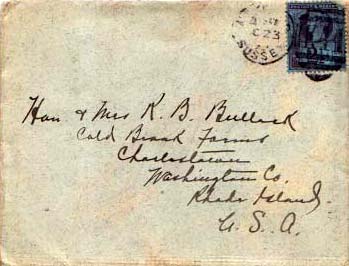 SUSSEX
C23
Hon & Mrs K. B. Bullock
Cold Brook Farms
Charlestown
Washington Co.
Rhode Island.
U. S. A.